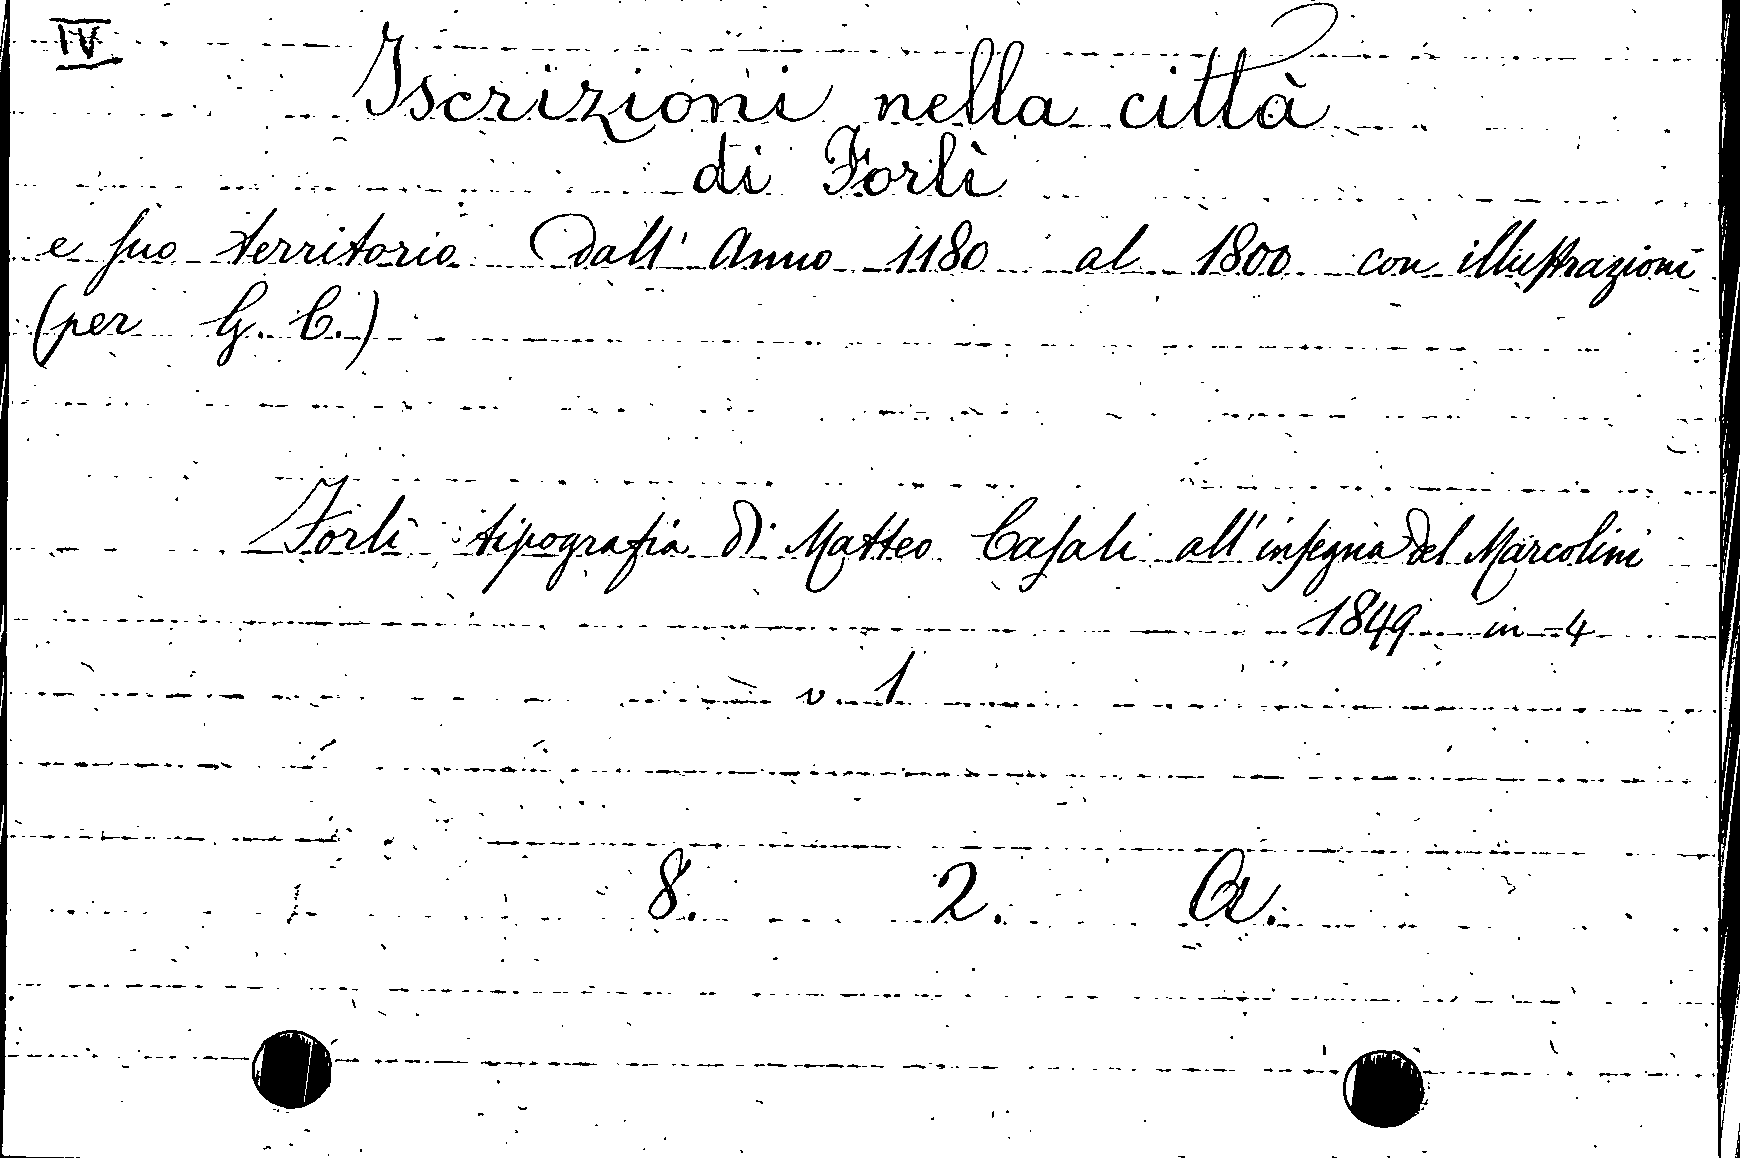 IV
Iscrizioni nella città
di Forlì
e suo territorio dall' Anno 1180 al 1800 con illustrazioni
(per G. C.)
Forlì tipografia di Matteo Casali all'insegna del Marcolini
1849 in-4
v. 1
8. 2. A.